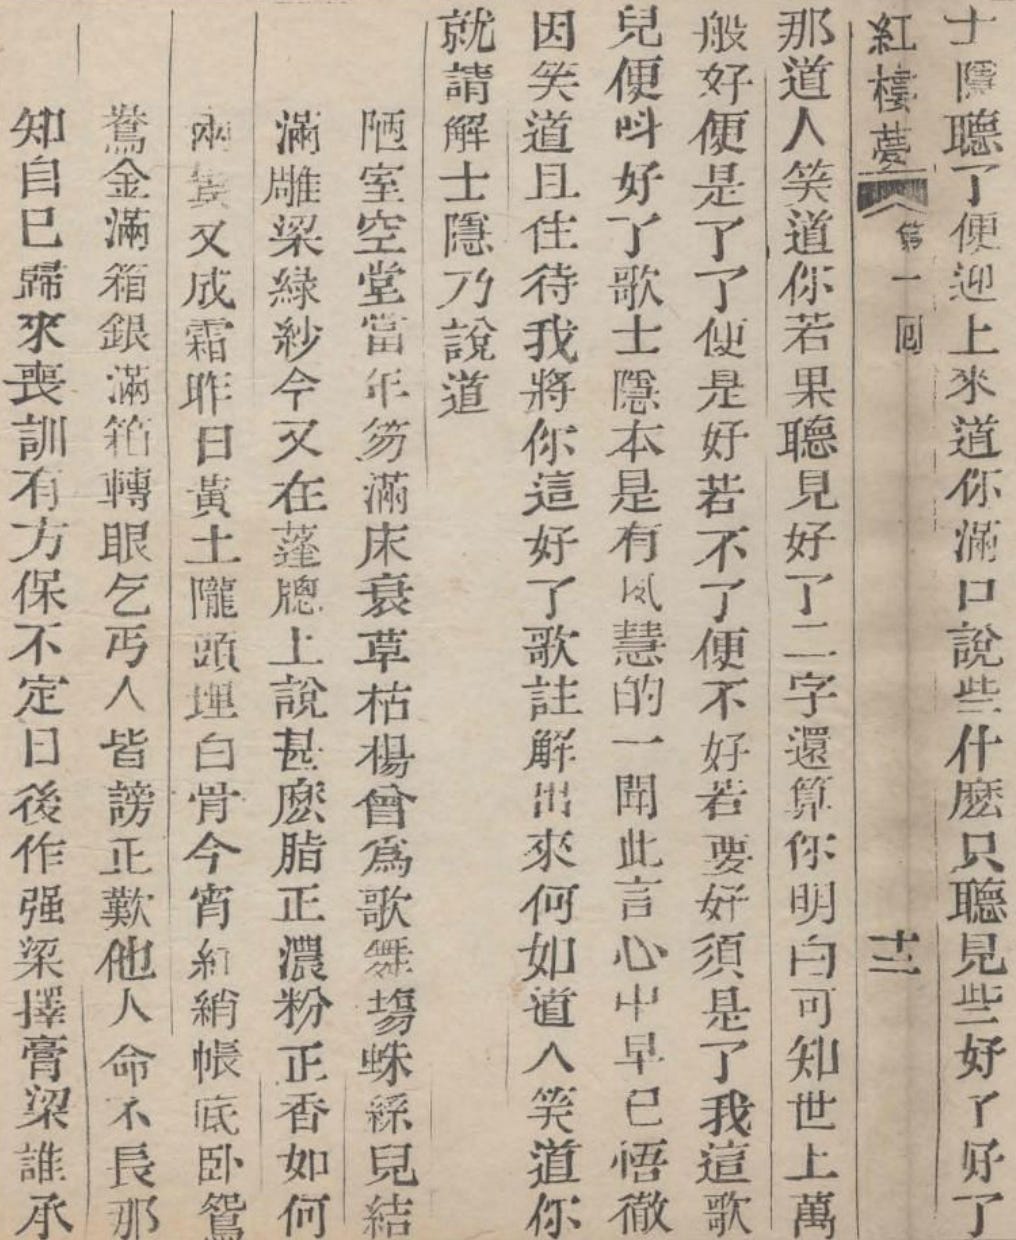 士隱聽了便迎上來道你滿口說些什麽只聽見些好了好了
紅樓夢 第一回 十三
那道人笑道你若果聽見好了二字還算你明白可知世上萬
般好便是了了便是好若不了便不好若要好須是了我這歌
兒便呌好了歌士隱本是有夙慧的一聞此言心中早已悟徹
因笑道且住待我將你這好了歌註解出來何如道人笑道你
就請解士隱乃說道
陋室空堂當年笏滿床衰草枯楊曾爲歌舞塲蛛絲兒結
滿雕梁綠紗今又在蓬牕上說甚麽脂正濃粉正香如何
兩鬢又成霜昨日黃土隴頭埋白骨今宵紅綃帳底卧鴛
鴦金滿箱銀滿箱轉眼乞丐人皆謗正歎他人命不長那
知自己歸來喪訓有方保不定日後作强梁擇膏粱誰承